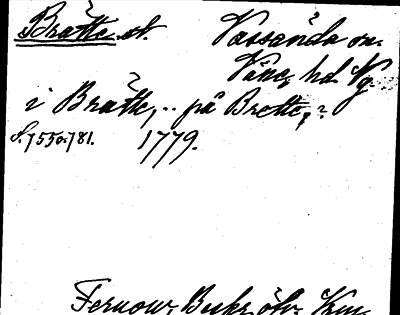 Brätte, st. Vassända sn.
Väne hd. Vg.
i Brätte, .. på Brette, ?
s. 755 o. 781. 1779.
Fernow, Beskr. öfv. Wm.